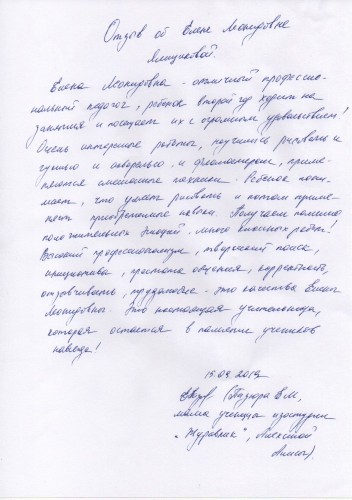 Отзыв об Елене Мокировне
Ямщиковой.
Елена Мокировна - отличный профессио-
нальный педагог, ребенок второй год ходит на
занятия и посещает их с огромным удовольствием!
Очень интересные работы, научились рисовать и
гуашью и акварелью и фломастером, приме-
няются смешанные техники. Ребенок пони-
мает, что умеет рисовать и потом приме-
няет приобретенные навыки. Получаем помимо
положительных эмоций - много классных работ!
Высокий профессионализм, творческий поиск,
инициатива, простота общения, корректность,
отзывчивость, трудолюбие - это качества Елены
Мокировны. Это настоящая учительница,
которая остается в памяти учеников
навсегда!
15.09.2019
(Пазюра Е.М,
мама ученицы изостудии
"Журавлик",
Алисы).